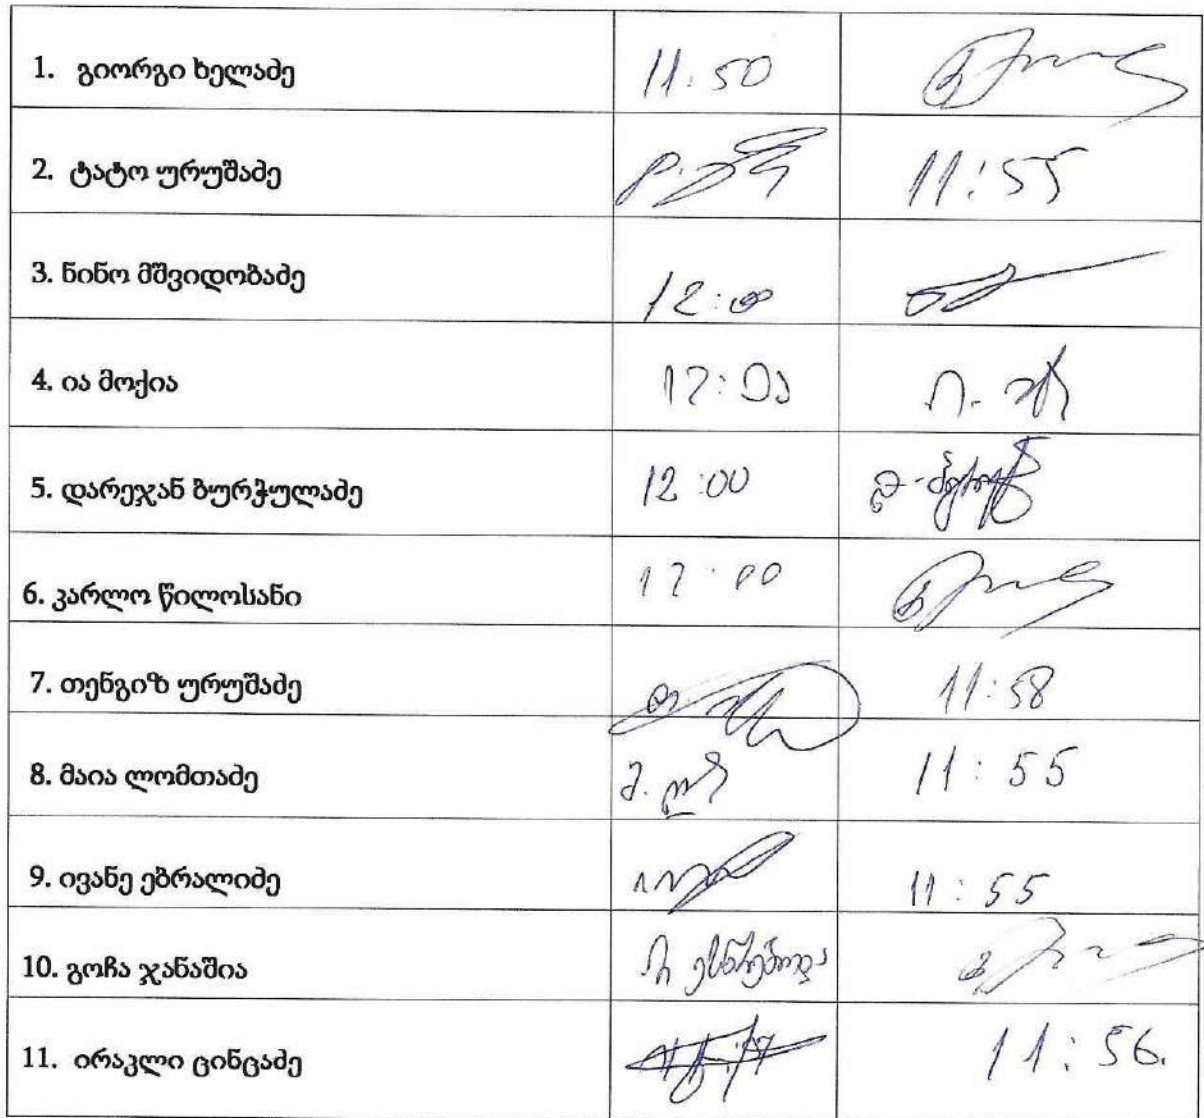 1. გიორგი ხელაძე 11:50
2. ტატო ურუშაძე 11:55
3. ნინო მშვიდობაძე 12:00
4. ია მოქია 12:00
5. დარეჯან ბურჭულაძე 12:00
6. კარლო წილოსანი 12:00
7. თენგიზ ურუშაძე 11:58
8. მაია ლომთაძე 11:55
9. ივანე ებრალიძე 11:55
10. გოჩა ჯანაშია არ ესწრებოდა
11. ირაკლი ცინცაძე 11:56.